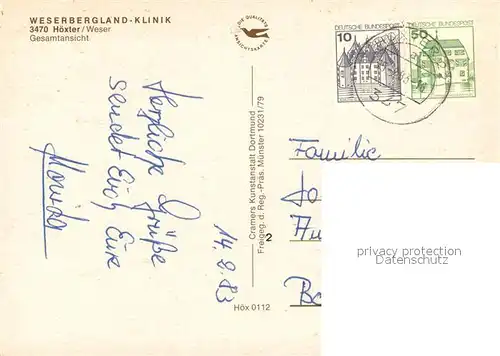 WESERBERGLAND-KLINIK
3470 Höxter/Weser
Gesamtansicht
DIE QUALITÄTS
ANSICHTSKARTE
DEUTSCHE BUNDESPOST
10
DEUTSCHE BUNDESPOST
50
Herzliche Grüße
sendet Euch Eure
Monika
14.9.83
Cramers Kunstanstalt Dortmund
Freigeg. d. Reg.-Präs. Münster 10231/79
2
Höx 0112
Familie
Jo
Au
Ba
privacy protection
Datenschutz